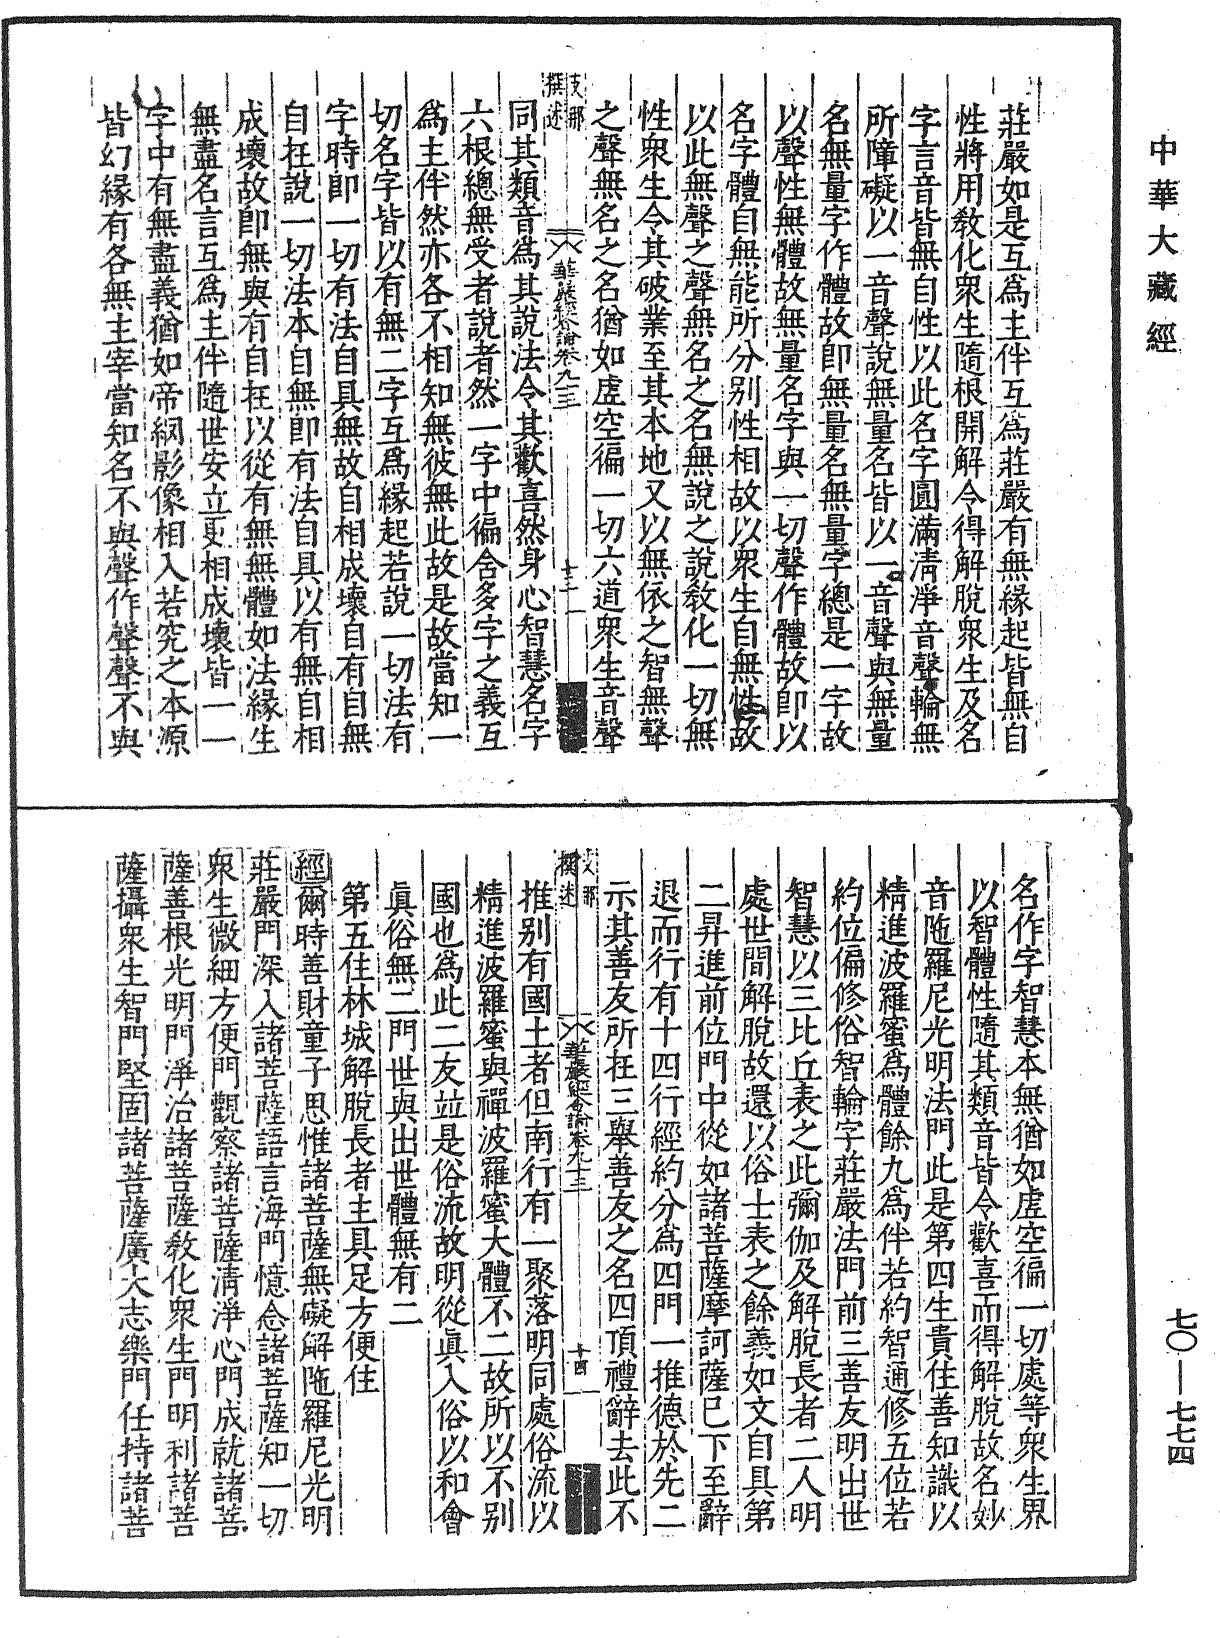 中華大藏經
莊嚴如是互爲主伴互爲莊嚴有無緣起皆無自
性將用敎化衆生隨根開解令得解脫衆生及名
字言音皆無自性以此名字圓滿淸淨音聲輪無
所障礙以一音聲說無量名皆以一音聲與無量
名無量字作體故卽無量名無量字總是一字故
以聲性無體故無量名字與一切聲作體故卽以
名字體自無能所分別性相故以衆生自無性故
以此無聲之聲無名之名無說之說敎化一切無
性衆生令其破業至其本地又以無依之智無聲
之聲無名之名猶如虛空徧一切六道衆生音聲
支那
撰述
華嚴經合論卷九十三
十三
同其類音爲其說法令其歡喜然身心智慧名字
六根總無受者說者然一字中徧含多字之義互
爲主伴然亦各不相知無彼無此故是故當知一
切名字皆以有無二字互爲緣起若說一切法有
字時卽一切有法自具無故自相成壞自有自無
自在說一切法本自無卽有法自具以有無自相
成壞故卽無與有自在以從有無無體如法緣生
無盡名言互爲主伴隨世安立更相成壞皆一一
字中有無盡義猶如帝網影像相入若究之本源
皆幻緣有各無主宰當知名不與聲作聲聲不與
名作字智慧本無猶如虛空徧一切處等衆生界
以智體性隨其類音皆令歡喜而得解脫故名妙
音陁羅尼光明法門此是第四生貴住善知識以
精進波羅蜜爲體餘九爲伴若約智通修五位若
約位偏修俗智輪字莊嚴法門前三善友明出世
智慧以三比丘表之此彌伽及解脫長者二人明
處世間解脫故還以俗士表之餘義如文自具第
二昇進前位門中從如諸菩薩摩訶薩已下至辭
退而行有十四行經約分爲四門一推德於先二
示其善友所在三舉善友之名四頂禮辭去此不
支那
撰述
華嚴經合論卷九十三
十四
推别有國土者但南行有一聚落明同處俗流以
精進波羅蜜與禪波羅蜜大體不二故所以不别
國也爲此二友竝是俗流故明從眞入俗以和會
眞俗無二門世與出世體無有二
第五住林城解脫長者主具足方便住
經爾時善財童子思惟諸菩薩無礙解陁羅尼光明
莊嚴門深入諸菩薩語言海門憶念諸菩薩知一切
衆生微細方便門觀察諸菩薩淸淨心門成就諸菩
薩善根光明門淨治諸菩薩敎化衆生門明利諸菩
薩攝衆生智門堅固諸菩薩廣大志樂門任持諸菩
七〇—七七四